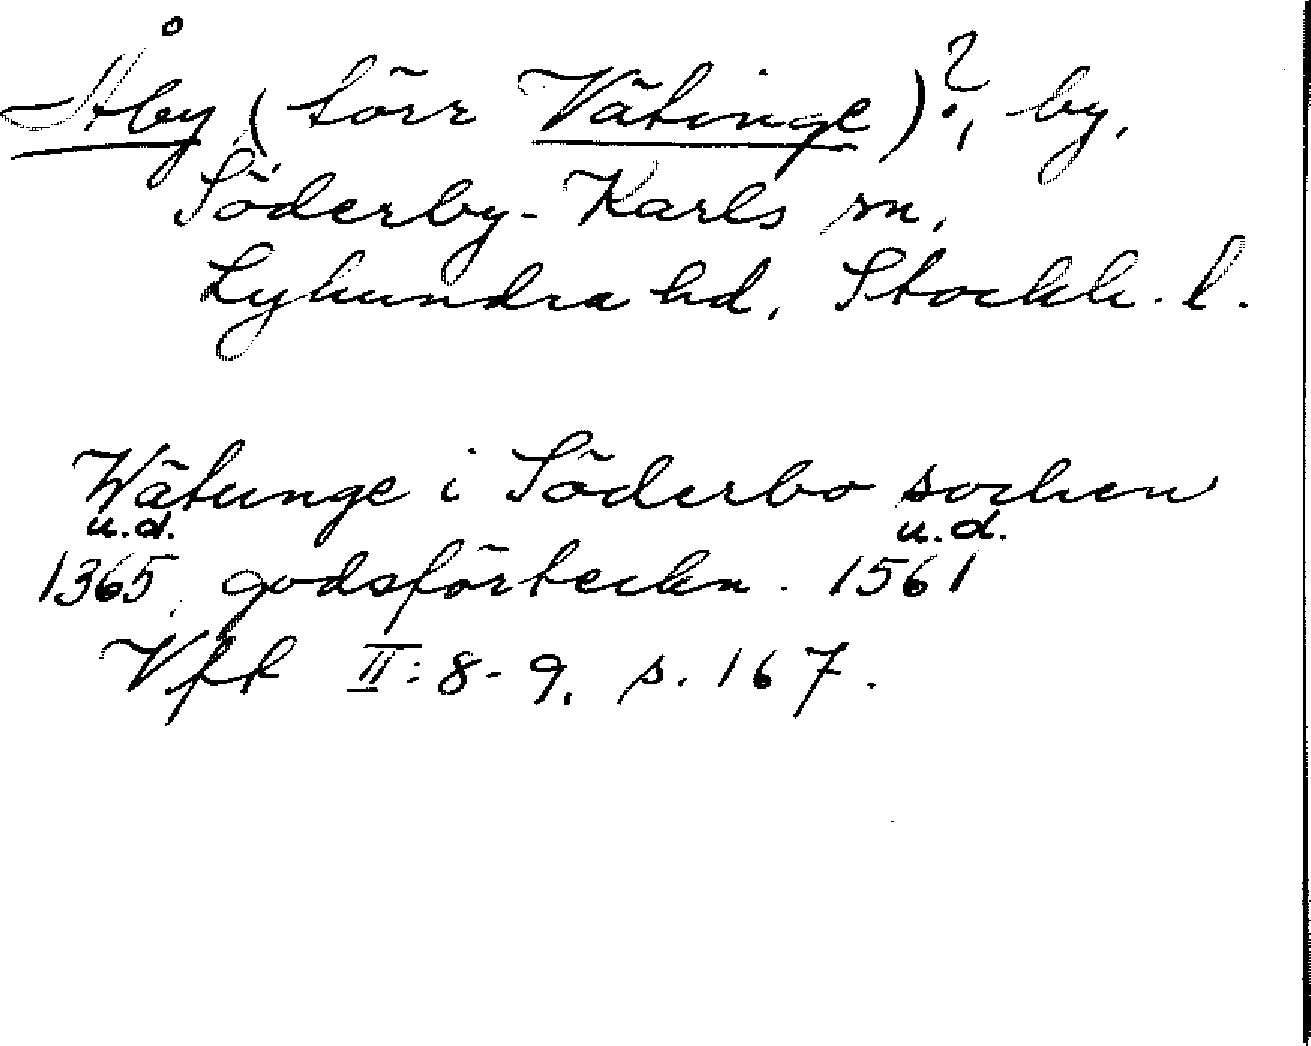 Åby (förr Vätinge)?, by,
Söderby-Karls sn,
Lyhundra hd, Stockh. l.
Wätunge i Söderbo sochen
u.d. u.d.
1365, godsförteckn. 1561
Vfk II:8-9, s. 167.